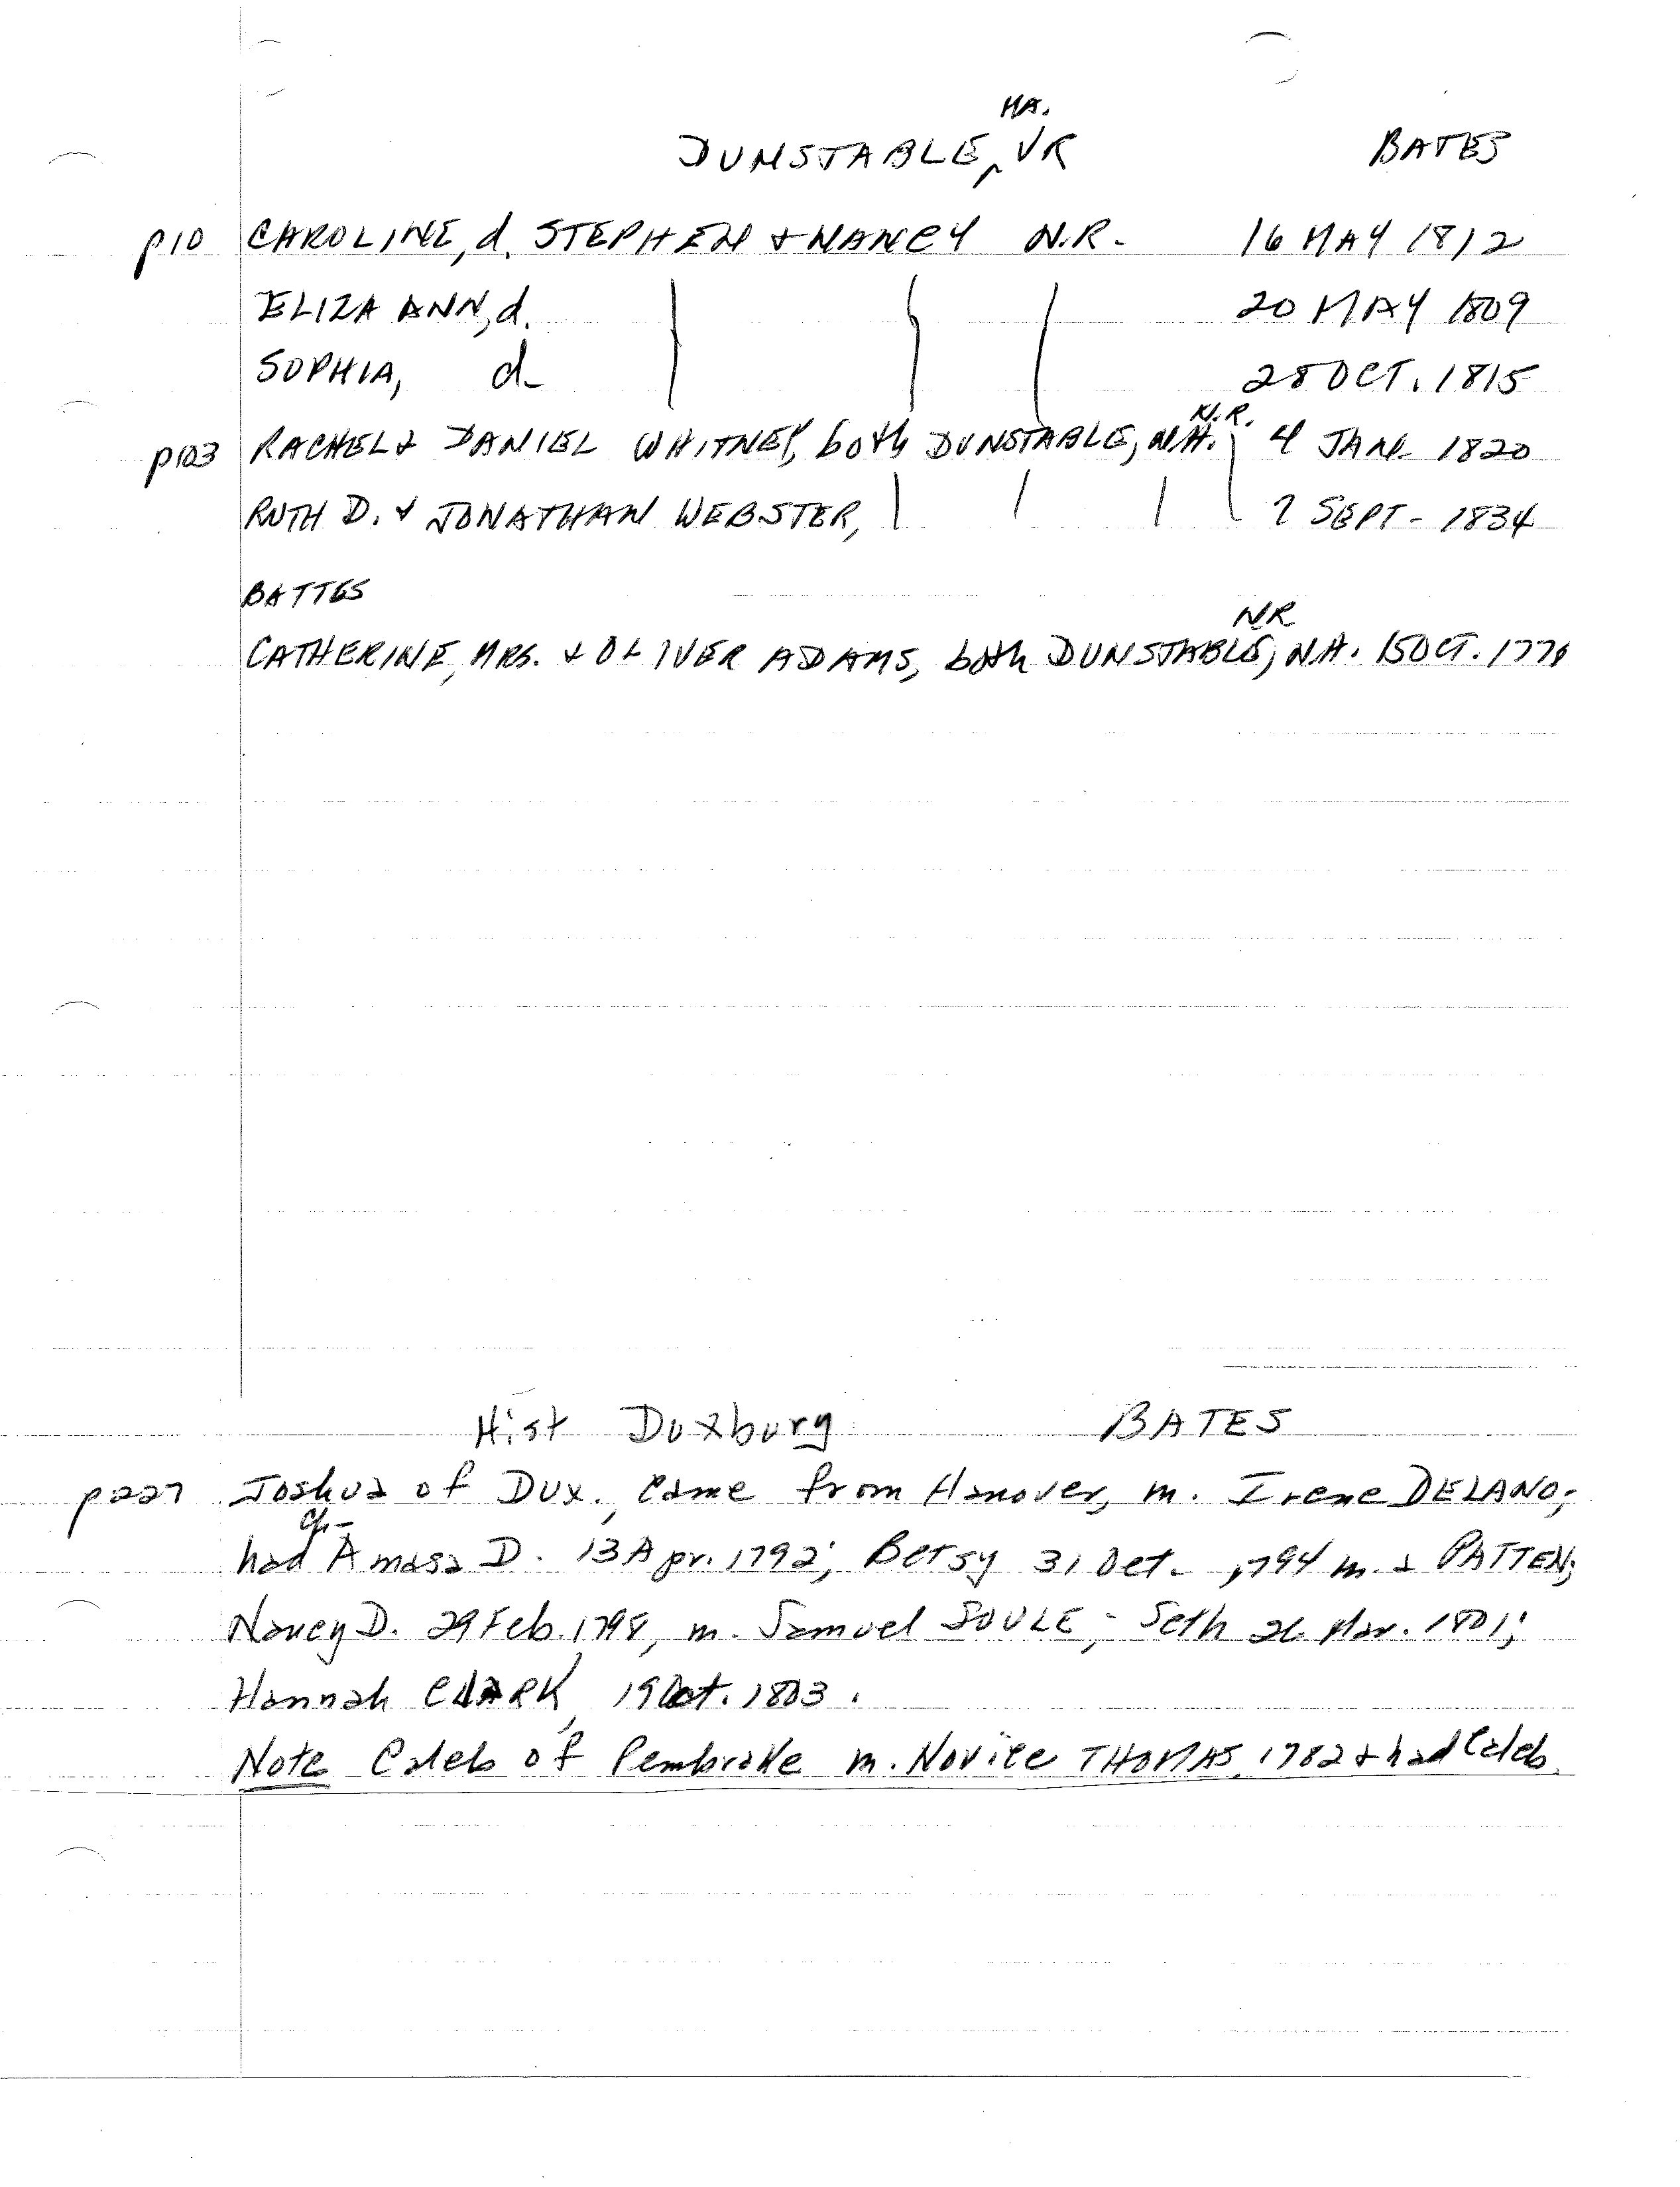 MA.
DUNSTABLE, ^ VR BATES
p10 CAROLINE, d. STEPHEN & NANCY N.R. 16 MAY 1812
ELIZA ANN, d. 20 MAY 1809
SOPHIA, d 28 OCT. 1815
N.R.
p103 RACHEL & DANIEL WHITNEY, both DUNSTABLE, N.H. 4 JAN 1820
RUTH D. & JONATHAN WEBSTER, SEPT - 1834
BATTES
NR
CATHERINE, MRS. & OLIVER ADAMS, both DUNSTABLE, N.H. 15 OCT.
Hist Duxbury BATES
p227 Joshua of Dux., came from Hanover, m. Irene DELANO;
ch-
had Amasa D. 13 Apr. 1792; Betsy 31 Oct. 1794 m. a PATTEN;
Nancy D. 29 Feb. 1798, m. Samuel SOULE; Seth 26 Mar. 1801;
Hannah CLARK, 19 Oct. 1803.
Note Caleb of Pembroke m. Novice THOMAS, 1782 & had Caleb.